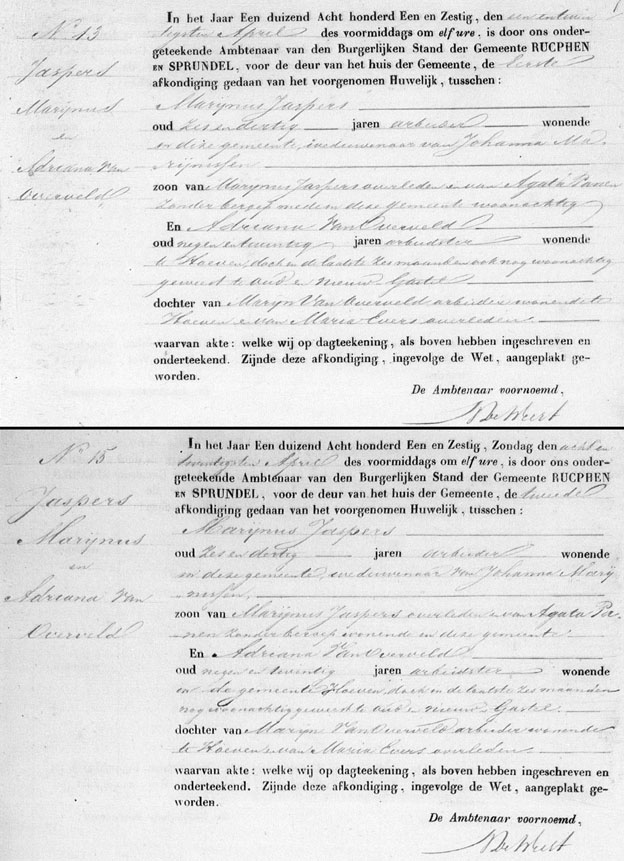 N° 13
Jaspers
Marijnus
en
Adriana Van
Overveld
In het Jaar Een duizend Acht honderd Een en Zestig, den een en twin
tigsten April des voormiddags om elf ure, is door ons onder-
geteekende Ambtenaar van den Burgerlijken Stand der Gemeente RUCPHEN
EN SPRUNDEL, voor de deur van het huis der Gemeente, de eerste
afkondiging gedaan van het voorgenomen Huwelijk, tusschen:
Marijnus Jaspers
oud Zes en dertig jaren arbeider wonende
in deze gemeente, weduwenaar van Johanna Ma
rijnissen
zoon van Marijnus Jaspers overleden en van Agata Panen
Zonder beroep mede in deze gemeente woonachtig
En Adriana Van Overveld
oud negen en twintig jaren arbeidster wonende
te Hoeven, doch in de laatste zes maanden ook nog woonachtig
geweest te oud en nieuw Gastel
dochter van Marijn Van Overveld arbeider wonende te
Hoeven en van Maria Evers overleden
waarvan akte: welke wij op dagteekening, als boven hebben ingeschreven en
onderteekend. Zijnde deze afkondiging, ingevolge de Wet, aangeplakt ge-
worden.
De Ambtenaar voornoemd,
N De Weert
N° 15
Jaspers
Marijnus
en
Adriana Van
Overveld
In het Jaar Een duizend Acht honderd Een en Zestig, Zondag den acht en
twentigsten April des voormiddags om elf ure, is door ons onder-
geteekende Ambtenaar van den Burgerlijken Stand der Gemeente RUCPHEN
EN SPRUNDEL, voor de deur van het huis der Gemeente, de tweede
afkondiging gedaan van het voorgenomen Huwelijk, tusschen:
Marijnus Jaspers
oud Zes en dertig jaren arbeider wonende
in deze gemeente, weduwenaar van Johanna Marij
nissen,
zoon van Marijnus Jaspers overleden en van Agata Pa-
nen Zonder beroep wonende in deze gemeente
En Adriana Van Overveld
oud negen en twintig jaren arbeidster wonende
in de gemeente Hoeven, doch in de laatste zes maanden
nog woonachtig geweest te oud en nieuw Gastel
dochter van Marijn Van Overveld arbeider wonende
te Hoeven en van Maria Evers overleden
waarvan akte: welke wij op dagteekening, als boven hebben ingeschreven en
onderteekend. Zijnde deze afkondiging, ingevolge de Wet, aangeplakt ge-
worden.
De Ambtenaar voornoemd,
N De Weert